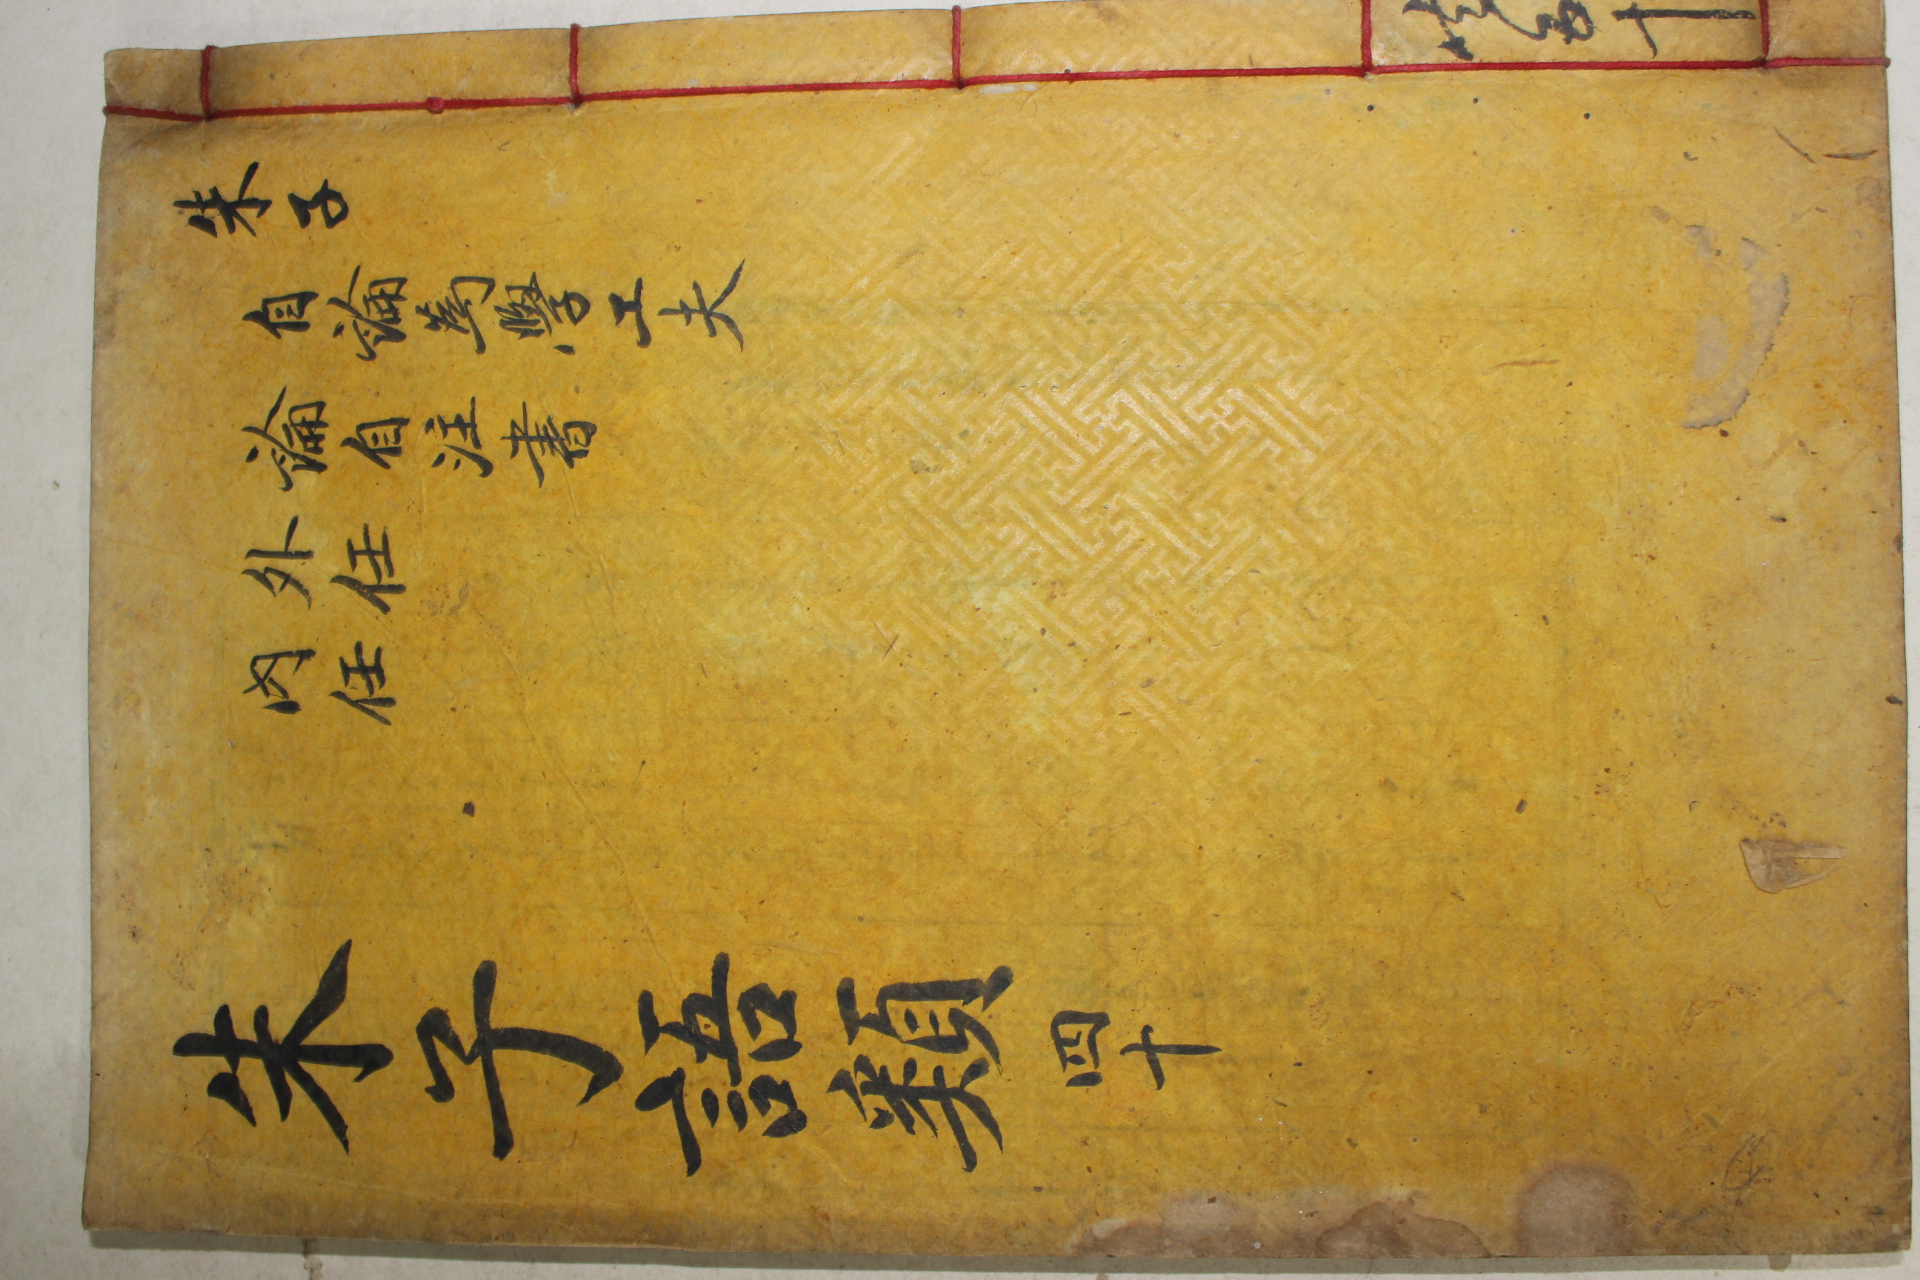 朱子
自論為學工夫
論自注書
外任
内任
朱子語類 四十